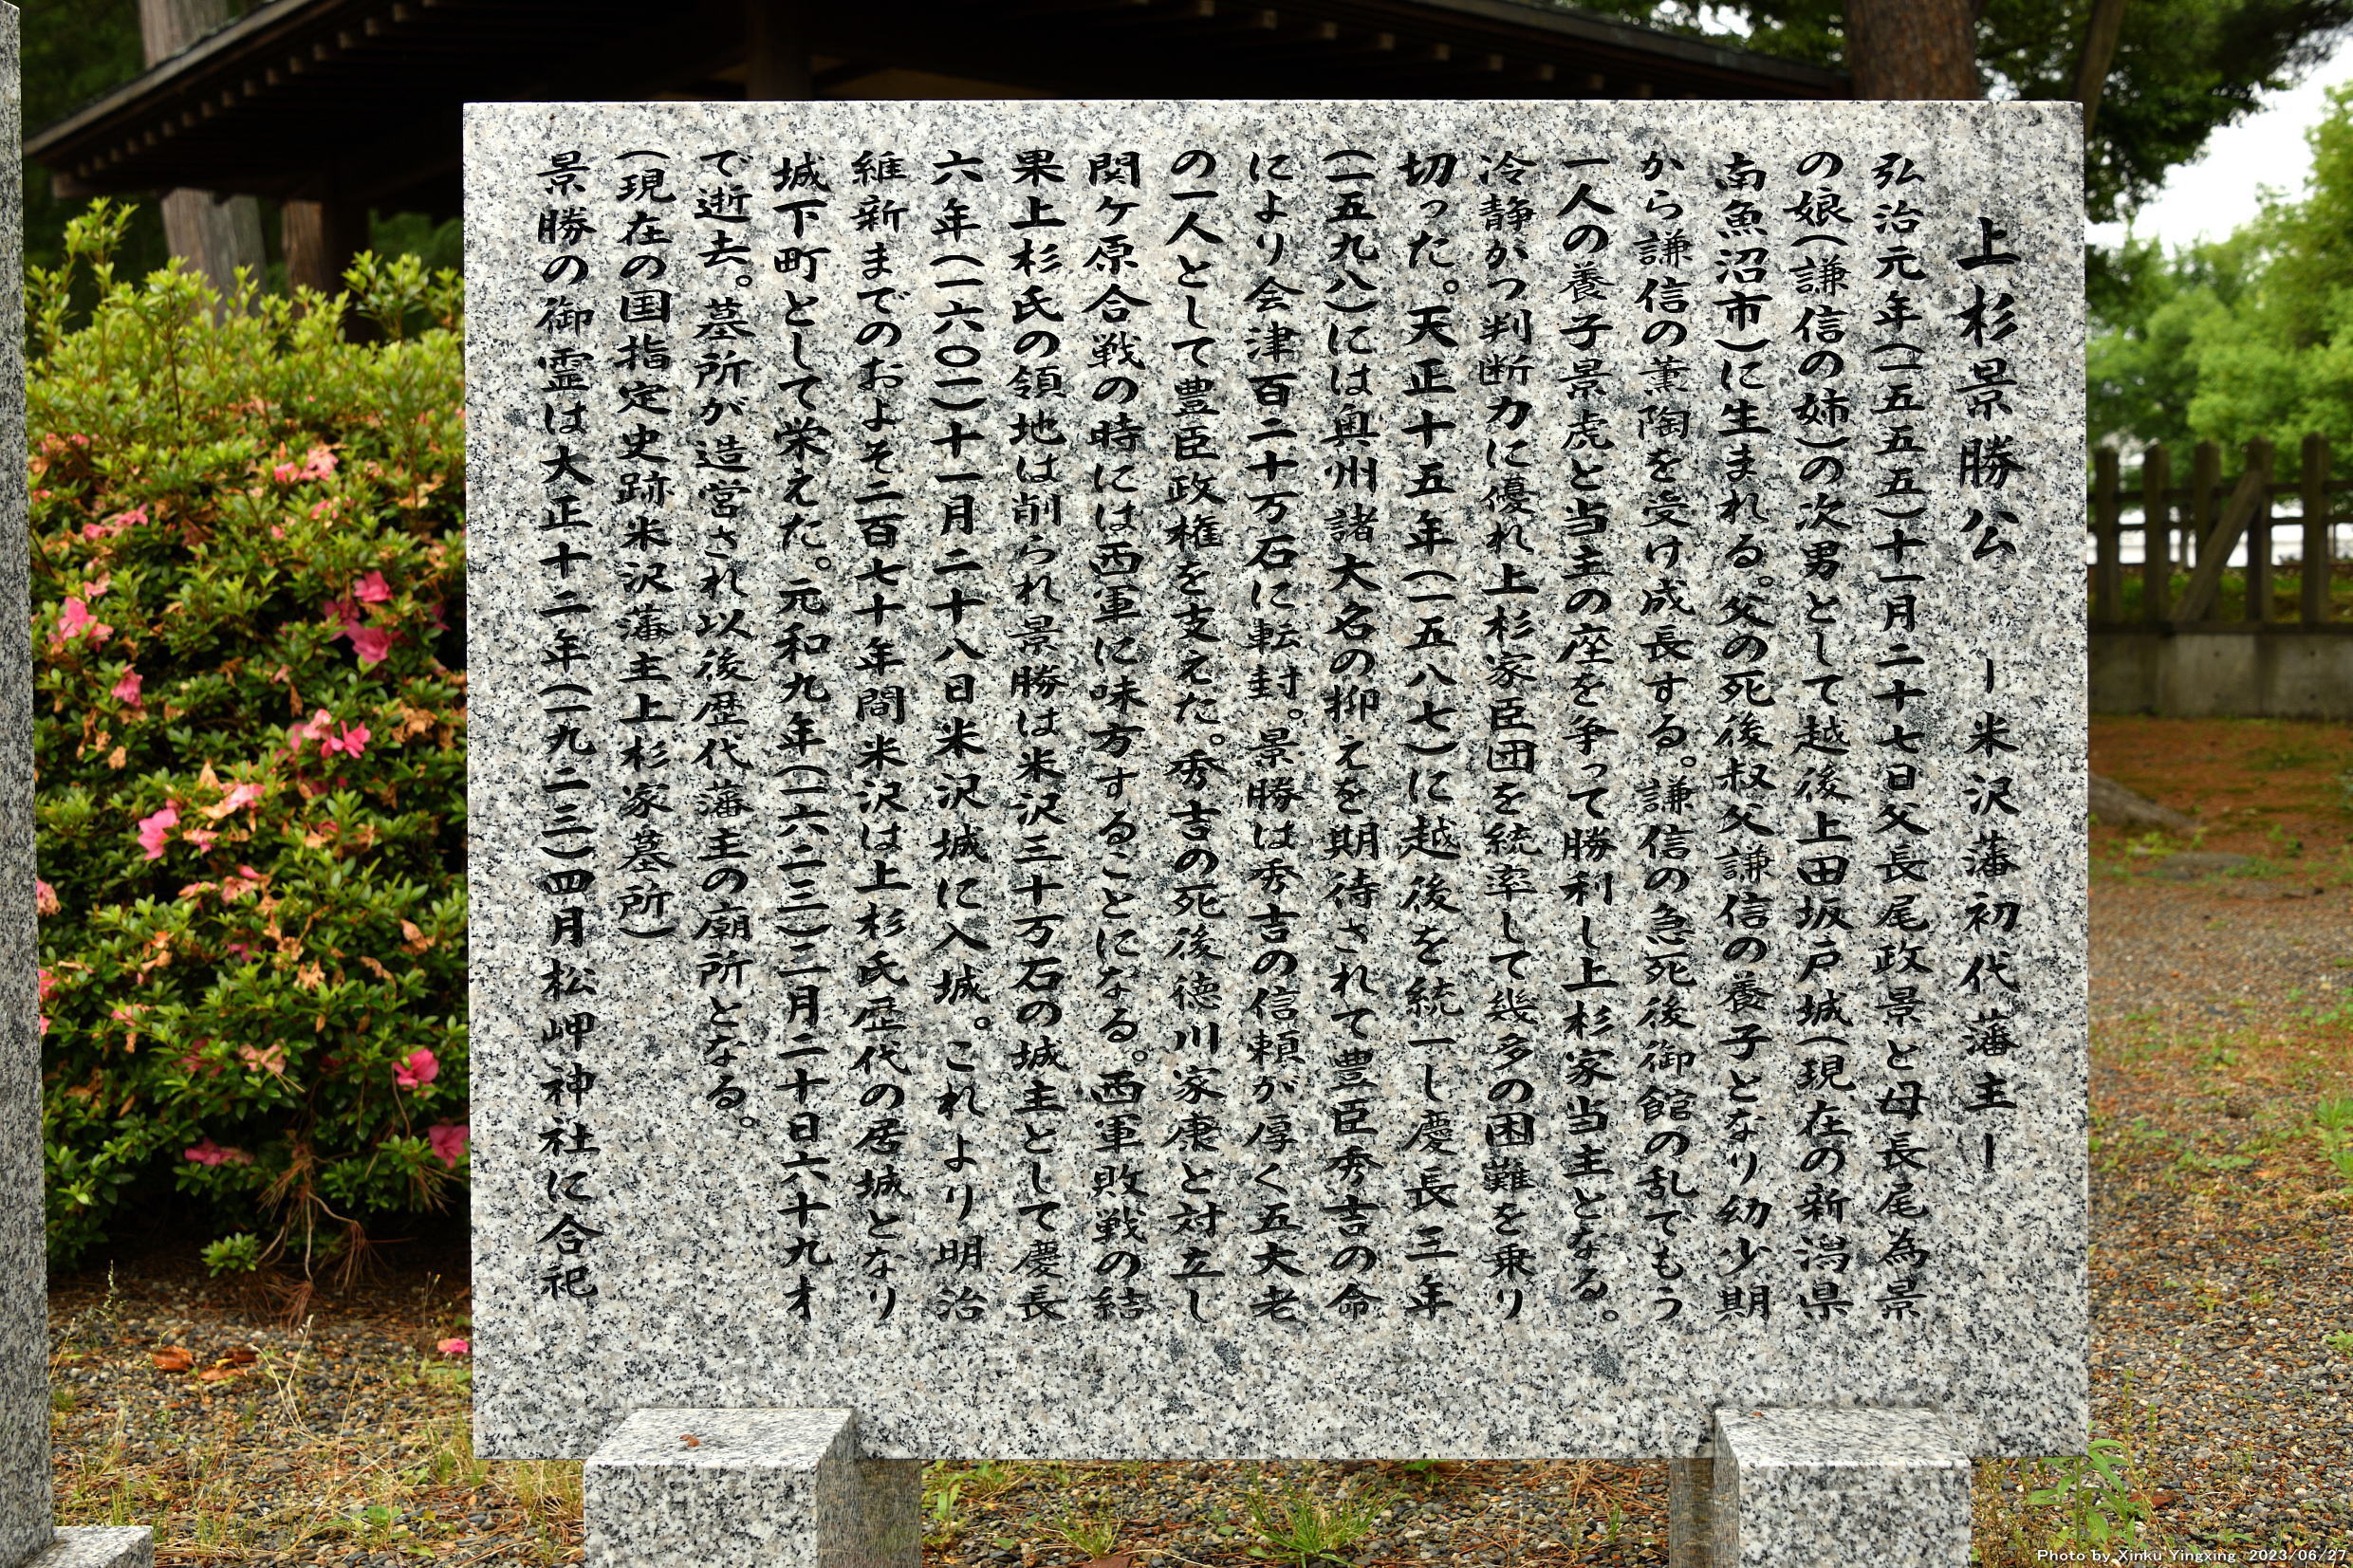 上杉景勝公 ー米沢藩初代藩主ー
弘治元年(一五五五)十一月二十七日父長尾政景と母長尾為景
の娘(謙信の姉)の次男として越後上田坂戸城(現在の新潟県
南魚沼市)に生まれる。父の死後叔父謙信の養子となり幼少期
から謙信の薫陶を受け成長する。謙信の急死後御館の乱でもう
一人の養子景虎と当主の座を争って勝利し上杉家当主となる。
冷静かつ判断力に優れ上杉家臣団を統率して幾多の困難を乗り
切った。天正十五年(一五八七)に越後を統一し慶長三年
(一五九八)には奥州諸大名の抑えを期待されて豊臣秀吉の命
により会津百二十万石に転封。景勝は秀吉の信頼が厚く五大老
の一人として豊臣政権を支えた。秀吉の死後徳川家康と対立し
関ヶ原合戦の時には西軍に味方することになる。西軍敗戦の結
果上杉氏の領地は削られ景勝は米沢三十万石の城主として慶長
六年(一六〇一)十一月二十八日米沢城に入城。これより明治
維新までのおよそ二百七十年間米沢は上杉氏歴代の居城となり
城下町として栄えた。元和九年(一六二三)三月二十日六十九才
で逝去。墓所が造営され以後歴代藩主の廟所となる。
(現在の国指定史跡米沢藩主上杉家墓所)
景勝の御霊は大正十二年(一九二三)四月松岬神社に合祀
Photo by Xinku Yingxing 2023/06/27